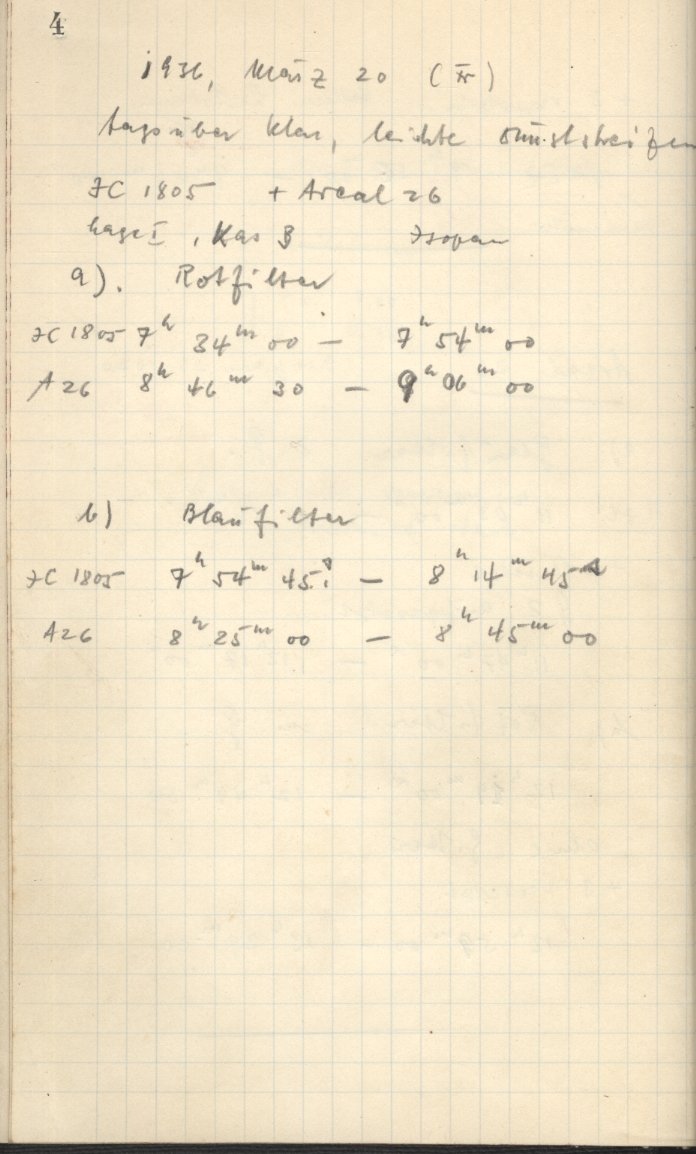 4
1936, März 20 (Fr)
tagsüber klar, leichte Dunststreifen
IC 1805 + Areal 26
Lage I, Kas 3 Isopan
a). Rotfilter
IC 1805 7h 34m 00 — 7h 54m 00
A 26 8h 46m 30 — 9h 06m 00
b) Blaufilter
IC 1805 7h 54m 45s — 8h 14m 45s
A26 8h 25m 00 — 8h 45m 00